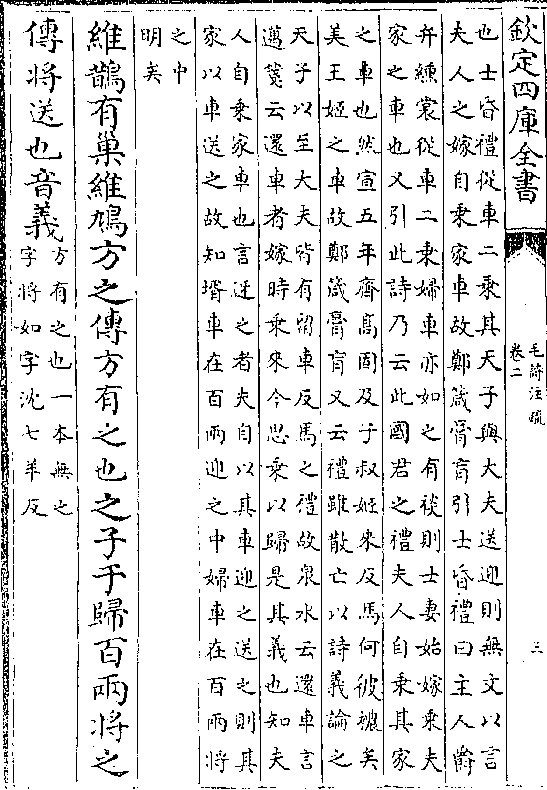 欽定四庫全書
毛詩注疏
卷二
三
也士昏禮從車二乘其天子與大夫送迎則無文以言
夫人之嫁自乘家車故鄭箴膏肓引士昏禮曰主人爵
弁纁裳從車二乘婦車亦如之有裧則士妻始嫁乘夫
家之車也又引此詩乃云此國君之禮夫人自乘其家
之車也然宣五年齊髙固及子叔姬來反馬何彼襛矣
美王姬之車故鄭箴膏肓又云禮雖散亡以詩義論之
天子以至大夫皆有留車反馬之禮故泉水云還車言
邁箋云還車者嫁時乘來今思乘以歸是其義也知夫
人自乘家車也言迓之者夫自以其車迎之送之則其
家以車送之故知壻車在百兩迎之中婦車在百兩將
之中
明矣
維鵲有巢維鳩方之傳方有之也之子于歸百兩將之
傳將送也音義
方有之也一本無之
字將如字沈七羊反